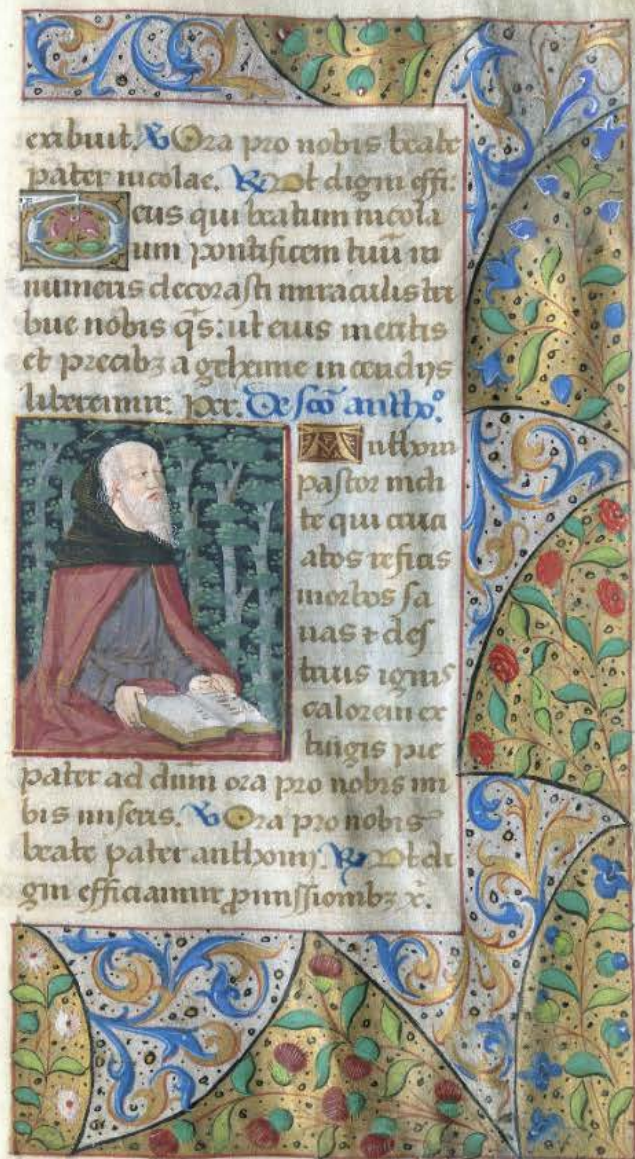 exibuit. V Ora pro nobis beate
pater nicolae. R Vt digni effi.
Deus qui beatum nicola
um pontificem tuū in
numeris decorasti miraculis tri
bue nobis qs: ut eius meritis
et precibꝫ a gehenne incendiis
liberemur. Per. De scō antho.
Anthoni
pastor incli
te qui cruci
atos reficis
morbos sa
nas ⁊ des
truis ignis
calorem ex
tingis pie
pater ad dūm ora pro nobis mi
bis miseris. V Ora pro nobis
beate pater anthoni. R Vt di
gni efficiamur ꝓmissionibꝫ x.